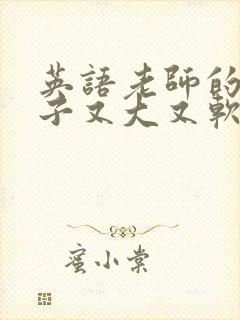 英語老師的
子又大又軟
蜜小棠